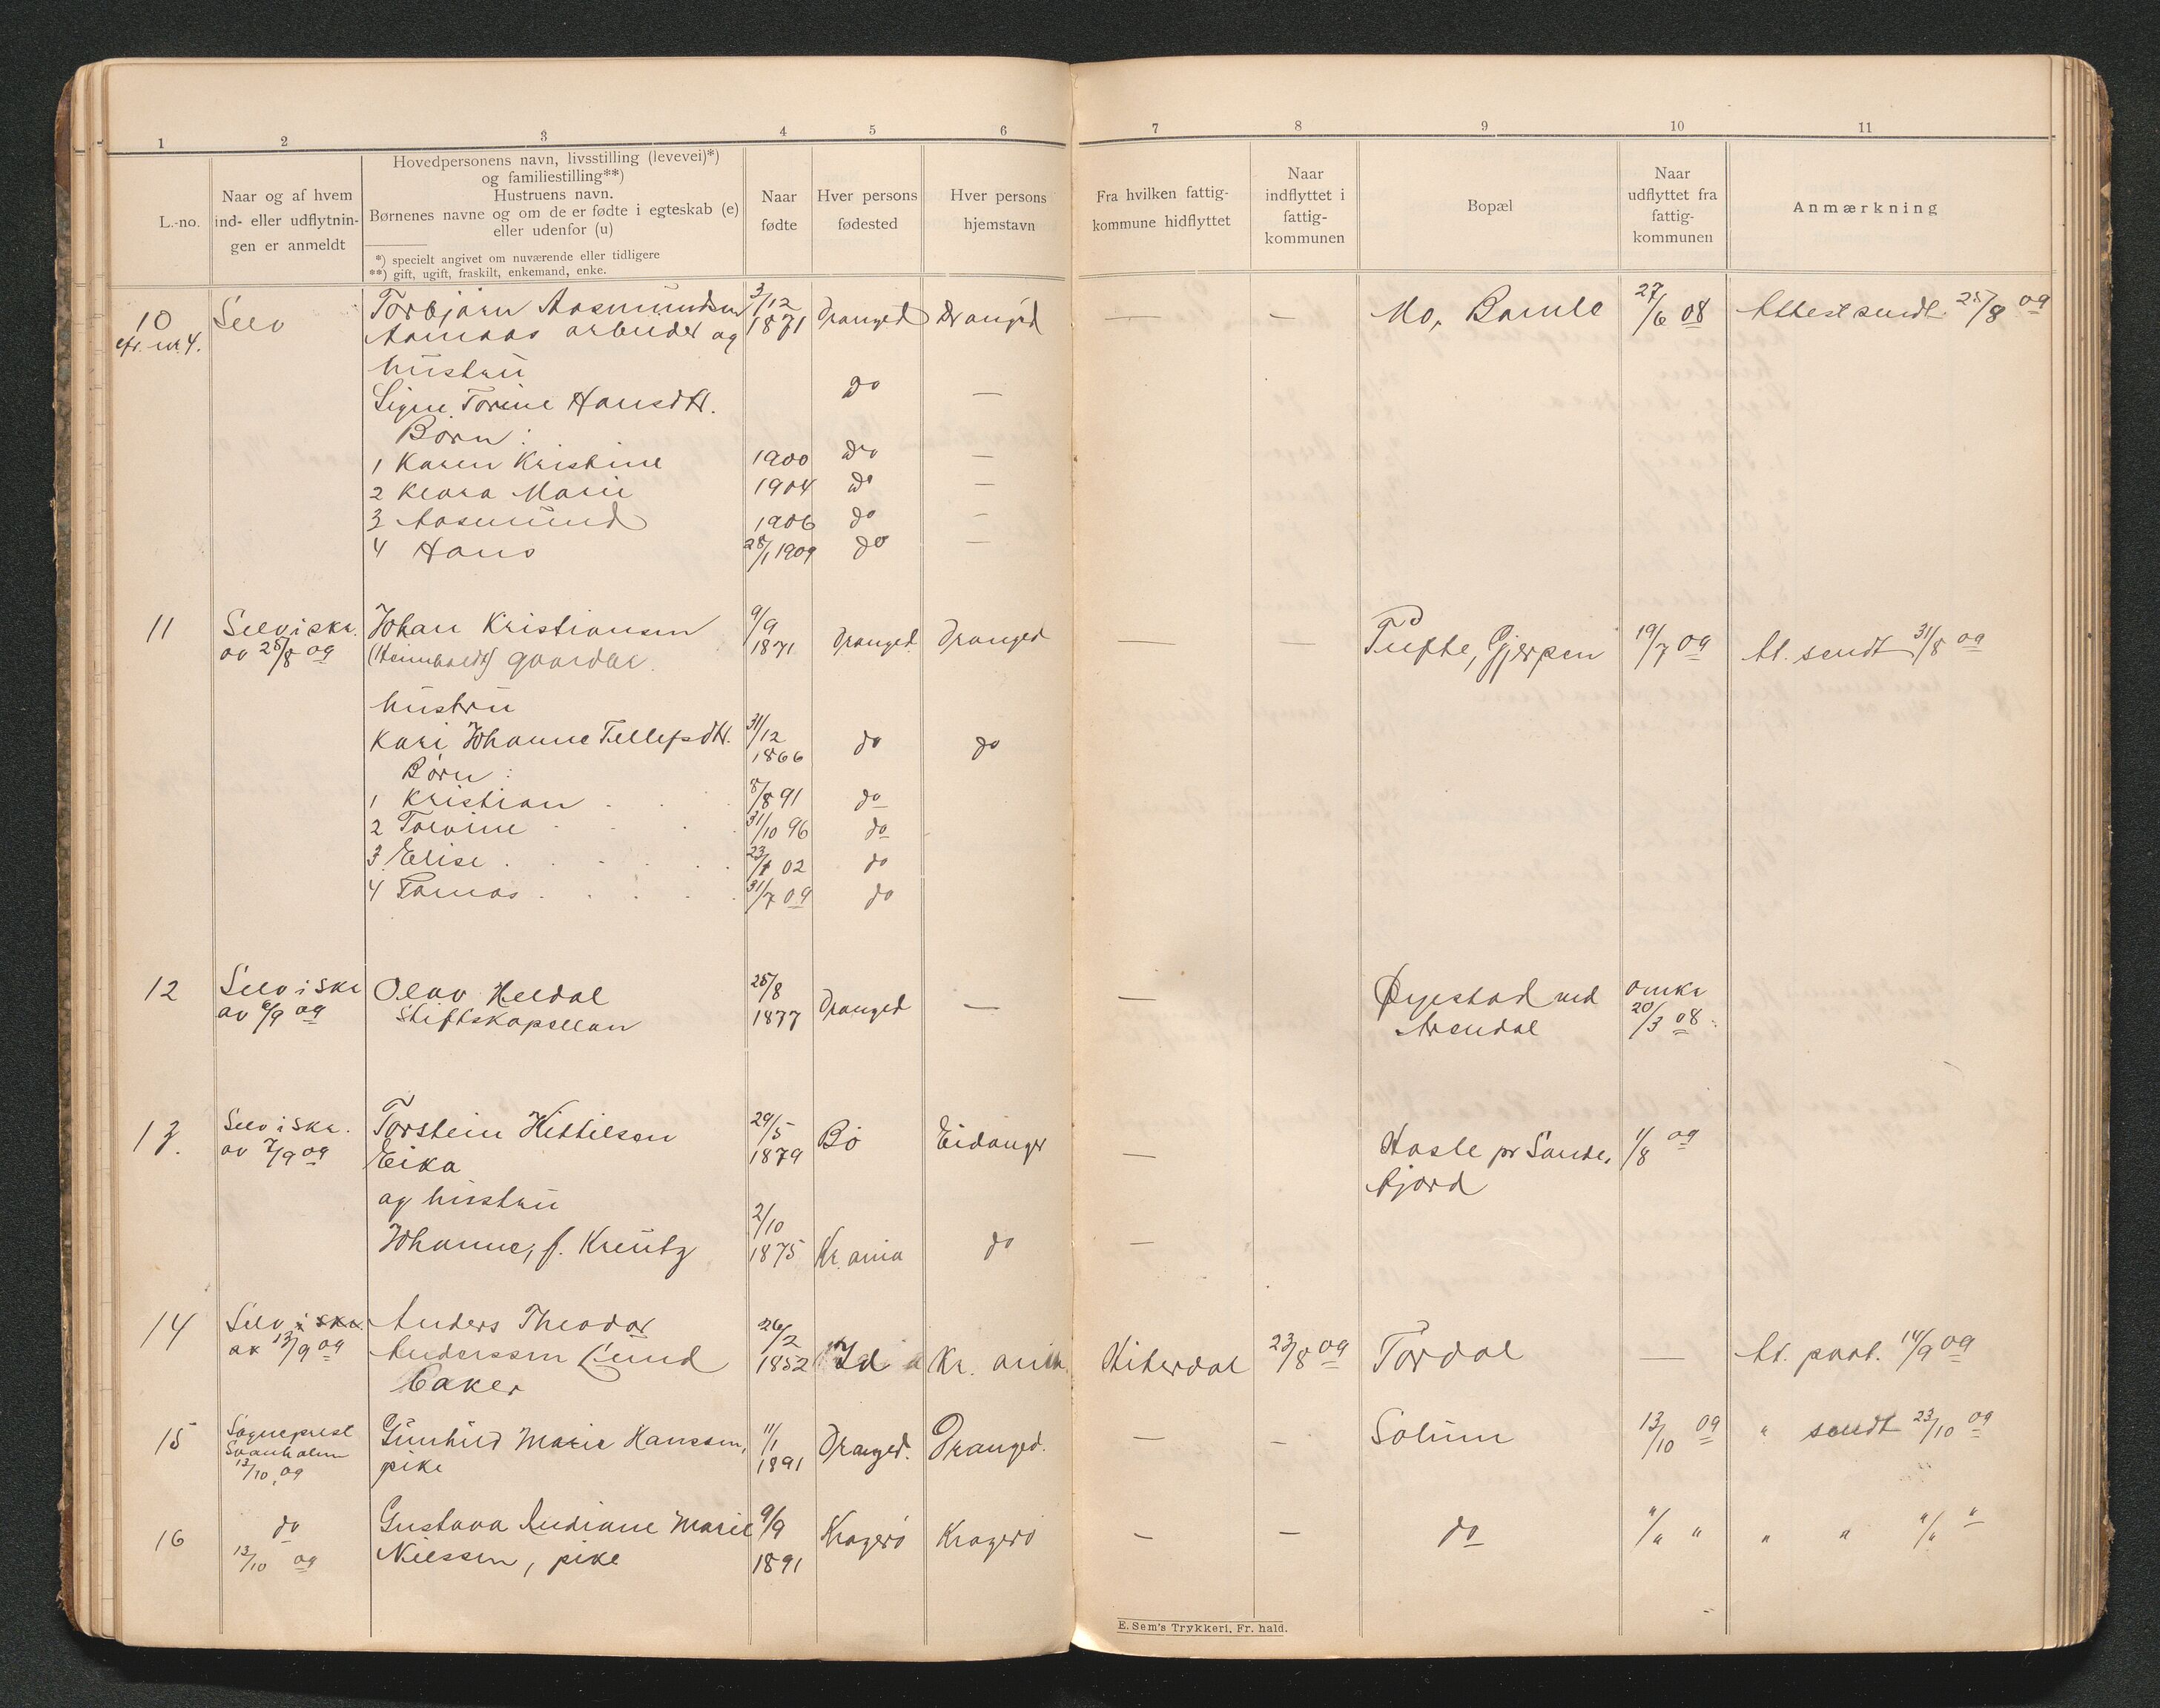 1 2 3 4 5 6 7 8 9 10 11
L.-no.
Naar og af hvem
ind- eller udflytnin-
gen er anmeldt
Hovedpersonens navn, livsstilling (levevei)*)
og familiestilling**)
Hustruens navn.
Børnenes navne og om de er fødte i egteskab (e)
eller udenfor (u)
*) specielt angivet om nuværende eller tidligere
**) gift, ugift, fraskilt, enkemand, enke.
Naar
fødte
Hver persons
fødested
Hver persons
hjemstavn
Fra hvilken fattig-
kommune hidflyttet
Naar
indflyttet i
fattig-
kommunen
Bopæl
Naar
udflyttet fra
fattig-
kommunen
Anmærkning
10 Selv Torbjørn Aasmundsen 3/12 Drangedal Drangedal — — Mo, Bamle 27/6 08 Attest sendt 25/8 09
cfr. nr. 4. arbeider og 1871
hustru
Signe Torine Hansdtr. do —
Børn:
1 Karen Kristine 1900 do —
2 Klara Marie 1904 do —
3 Aasmund 1906 do —
4 Hans 28/1 1909 do —
11 Selv i skr. Johan Kristiansen 9/9 Drangedal Drangedal — — Tufte, Gjerpen 19/7 09 At. sendt 31/8 09
av 25/8 09 gaardbr. 1871
hustru
Kari Johanne Tellefsdtr. 31/12 do do
1866
Børn:
1 Kristian 8/8 91 do
2 Torine 31/10 96 do
3 Elise 02 do
4 Tomas 31/7 09 do
12 Selv i skr Olav Heldal 25/8 Drangedal — — Øyestad ved omkr
av 6/9 09 Stiftskapellan 1877 Arendal 20/3 08
13. Selv i skr. Torstein Kittilsen 29/5 Bø Eidanger — Hasle pr Sande- 1/8 09
av 7/9 09 Eika 1879 fjord
og hustru
Johanne, f. Kreutz 2/10 1875 Kr.ania do —
14 Selv i skr. Anders Theodor 26/2 Id Kr. ania. Hiterdal 23/8 09 Tørdal — At. paat. 14/9 09
av 13/9 09 Anderssen Lund 1852
baker
15 Sogneprest Gunhild Marie Hanssen, 11/1 Drangedal. Drangedal. — — Solum 13/10 09 " sendt 23/10 09
Svanholm pike 1891
13/10 09
16 do Gustava Andiane Marie 9/9 Kragerø Kragerø — — do "/" " " " "/" "
13/10 09 Nielssen, pike 1891
E. Sem's Trykkeri, Fr. hald.